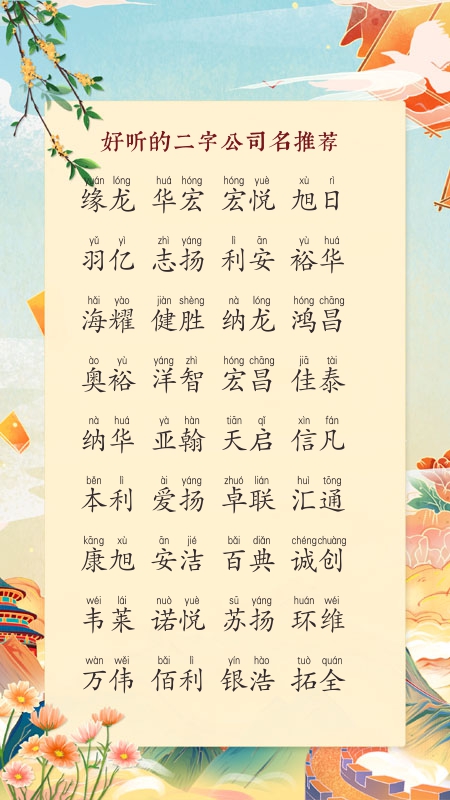 好听的二字公司名推荐
yuán lóng huá hóng hóng yuè xù rì
缘龙 华宏 宏悦 旭日
yǔ yì zhì yáng lì ān yù huá
羽亿 志扬 利安 裕华
hǎi yào jiàn shèng nà lóng hóng chāng
海耀 健胜 纳龙 鸿昌
ào yù yáng zhì hóng chāng jiā tài
奥裕 洋智 宏昌 佳泰
nà huá yà hàn tiān qǐ xìn fán
纳华 亚翰 天启 信凡
běn lì ài yáng zhuó lián huì tōng
本利 爱扬 卓联 汇通
kāng xù ān jié bǎi diǎn chéng chuàng
康旭 安洁 百典 诚创
wéi lái nuò yuè sū yáng huán wéi
韦莱 诺悦 苏扬 环维
wàn wěi bǎi lì yín hào tuò quán
万伟 佰利 银浩 拓全